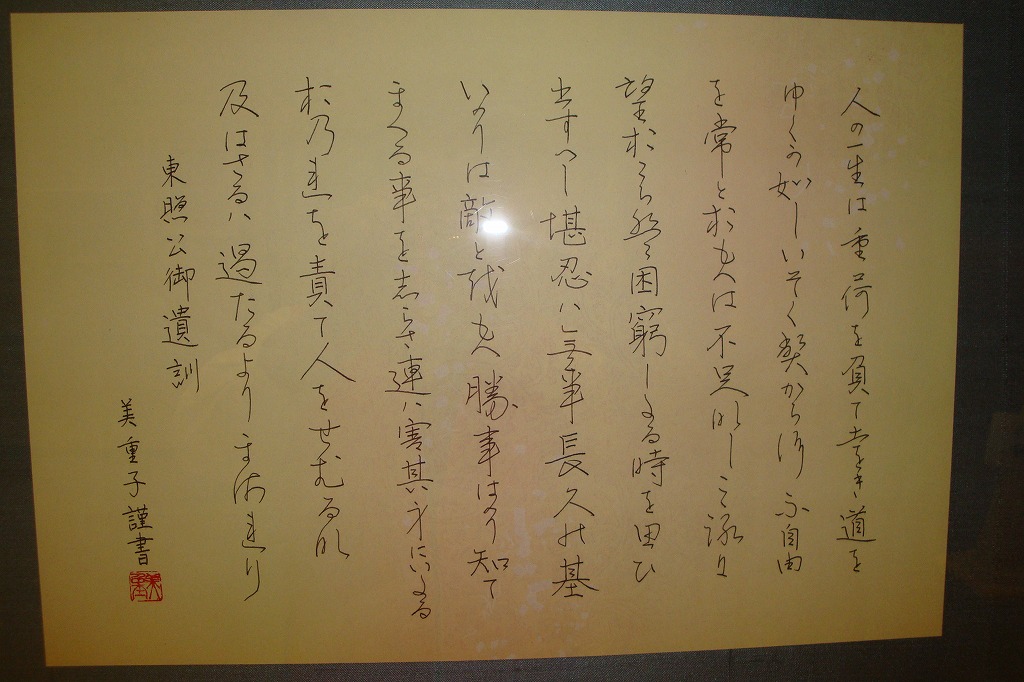 人の一生は重荷を負て遠き道を
ゆくか如しいそくへからす不自由
を常とおもへは不足なしこゝろに
望おこらは困窮したる時を思ひ
出すへし堪忍ハ無事長久の基
いかりは敵とおもへ勝事はかり知て
まくる事を志らされハ害其身にいたる
おのれを責て人をせむるな
及はさるハ過たるよりまされり
東照公御遺訓
美重子謹書